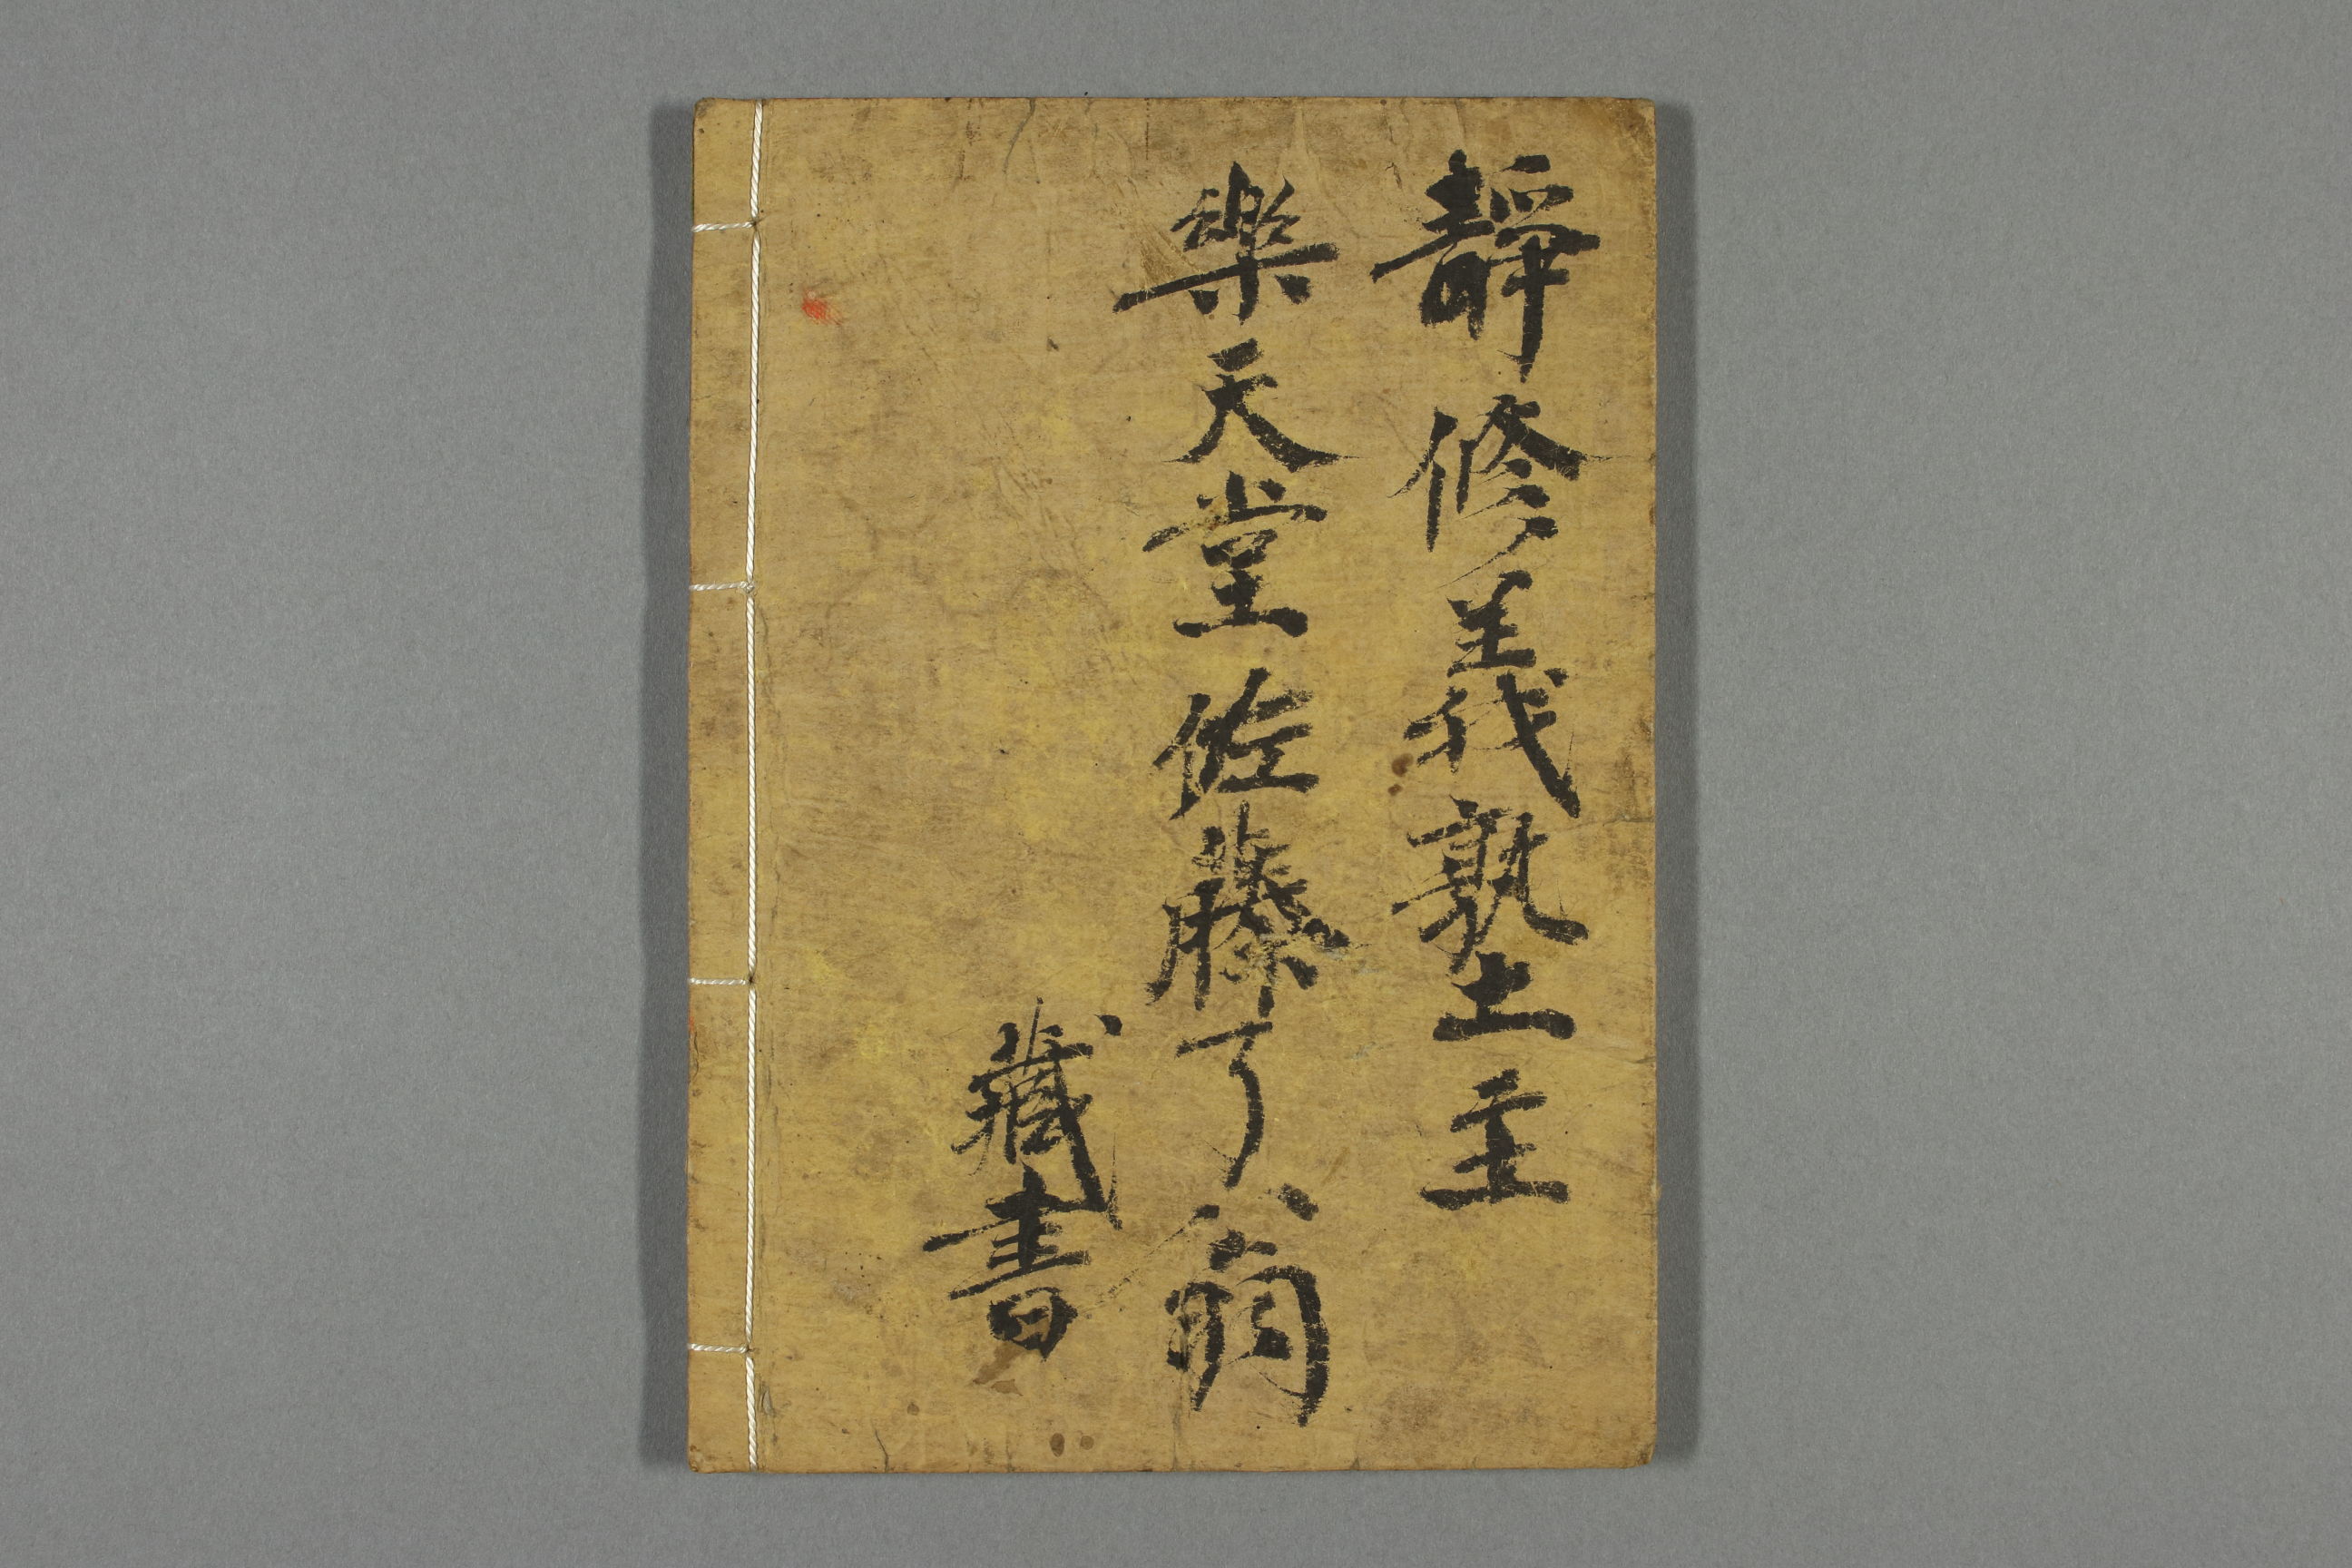 靜修義塾主
樂天堂佐藤了翁
藏書